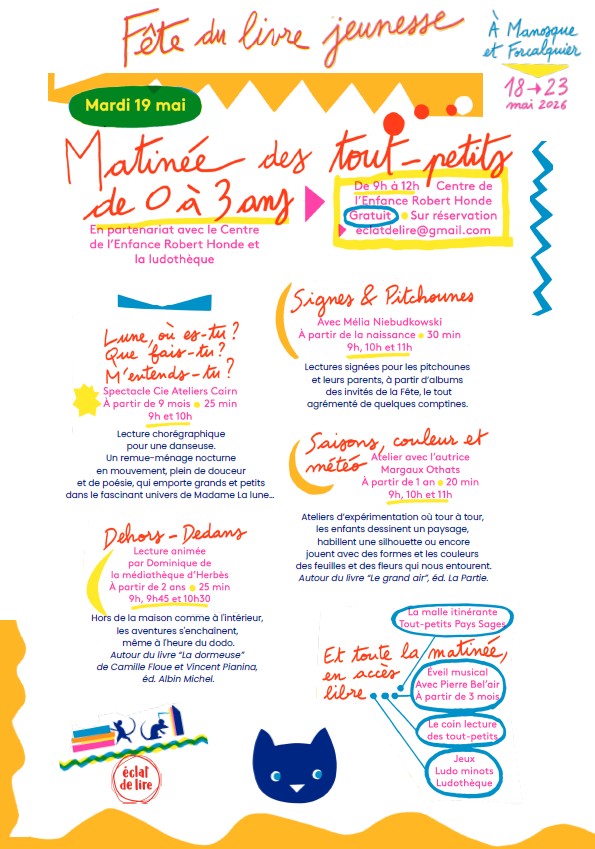 Fête du livre jeunesse
À Manosque
et Forcalquier
18→23
mai 2026
Mardi 19 mai
Matinée des tout-petits
de 0 à 3 ans
En partenariat avec le Centre
de l'Enfance Robert Honde et
la ludothèque
De 9h à 12h Centre de
l'Enfance Robert Honde
Gratuit Sur réservation
eclatdelire@gmail.com
Lune, où es-tu ?
Que fais-tu ?
M'entends-tu ?
Spectacle Cie Ateliers Cairn
À partir de 9 mois 25 min
9h et 10h
Lecture chorégraphique
pour une danseuse.
Un remue-ménage nocturne
en mouvement, plein de douceur
et de poésie, qui emporte grands et petits
dans le fascinant univers de Madame La lune...
Dehors - Dedans
Lecture animée
par Dominique de
la médiathèque d'Herbès
À partir de 2 ans 25 min
9h, 9h45 et 10h30
Hors de la maison comme à l'intérieur,
les aventures s'enchaînent,
même à l'heure du dodo.
Autour du livre "La dormeuse"
de Camille Floue et Vincent Pianina,
éd. Albin Michel.
Signes & Pitchounes
Avec Mélia Niebudkowski
À partir de la naissance 30 min
9h, 10h et 11h
Lectures signées pour les pitchounes
et leurs parents, à partir d'albums
des invités de la Fête, le tout
agrémenté de quelques comptines.
Saisons, couleur et
météo Atelier avec l'autrice
Margaux Othats
À partir de 1 an 20 min
9h, 10h et 11h
Ateliers d'expérimentation où tour à tour,
les enfants dessinent un paysage,
habillent une silhouette ou encore
jouent avec des formes et les couleurs
des feuilles et des fleurs qui nous entourent.
Autour du livre "Le grand air", éd. La Partie.
Et toute la matinée,
en accès
libre
La malle itinérante
Tout-petits Pays Sages
Éveil musical
Avec Pierre Bel'air
À partir de 3 mois
Le coin lecture
des tout-petits
Jeux
Ludo minots
Ludothèque
éclat
de lire